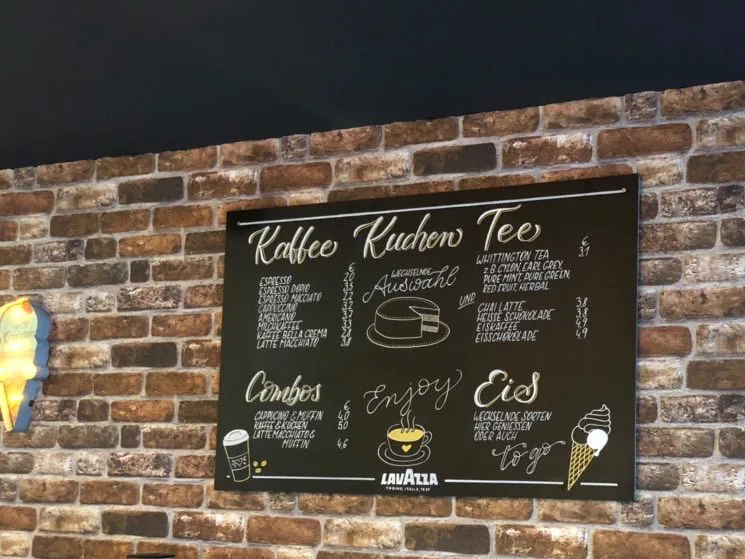 Kaffee
€
ESPRESSO 2,0
ESPRESSO DOPIO
ESPRESSO MACCHIATO
CAPPUCCINO
AMERICANO
MILCHKAFFEE
KAFFEE BELLA CREMA
LATTE MACCHIATO
Kuchen
WECHSELNDE
Auswahl
UND
Tee
€
WHITTINGTON TEA 3,1
Z.B. CYLON, EARL GREY,
PURE MINT, PURE GREEN,
RED FRUIT, HERBAL
CHAI LATTE 3,8
HEISSE SCHOKOLADE 3,8
EISKAFFEE 4,9
EISSCHOKOLADE 4,9
Combos
€
CAPPUCINO & MUFFIN 4,0
KAFFE & KUCHEN 5,0
LATTE MACCHIATO &
MUFFIN 4,6
Enjoy
LAVAZZA
TORINO, ITALIA, 1895
Eis
WECHSELNDE SORTEN
HIER GENIESSEN
ODER AUCH
to go